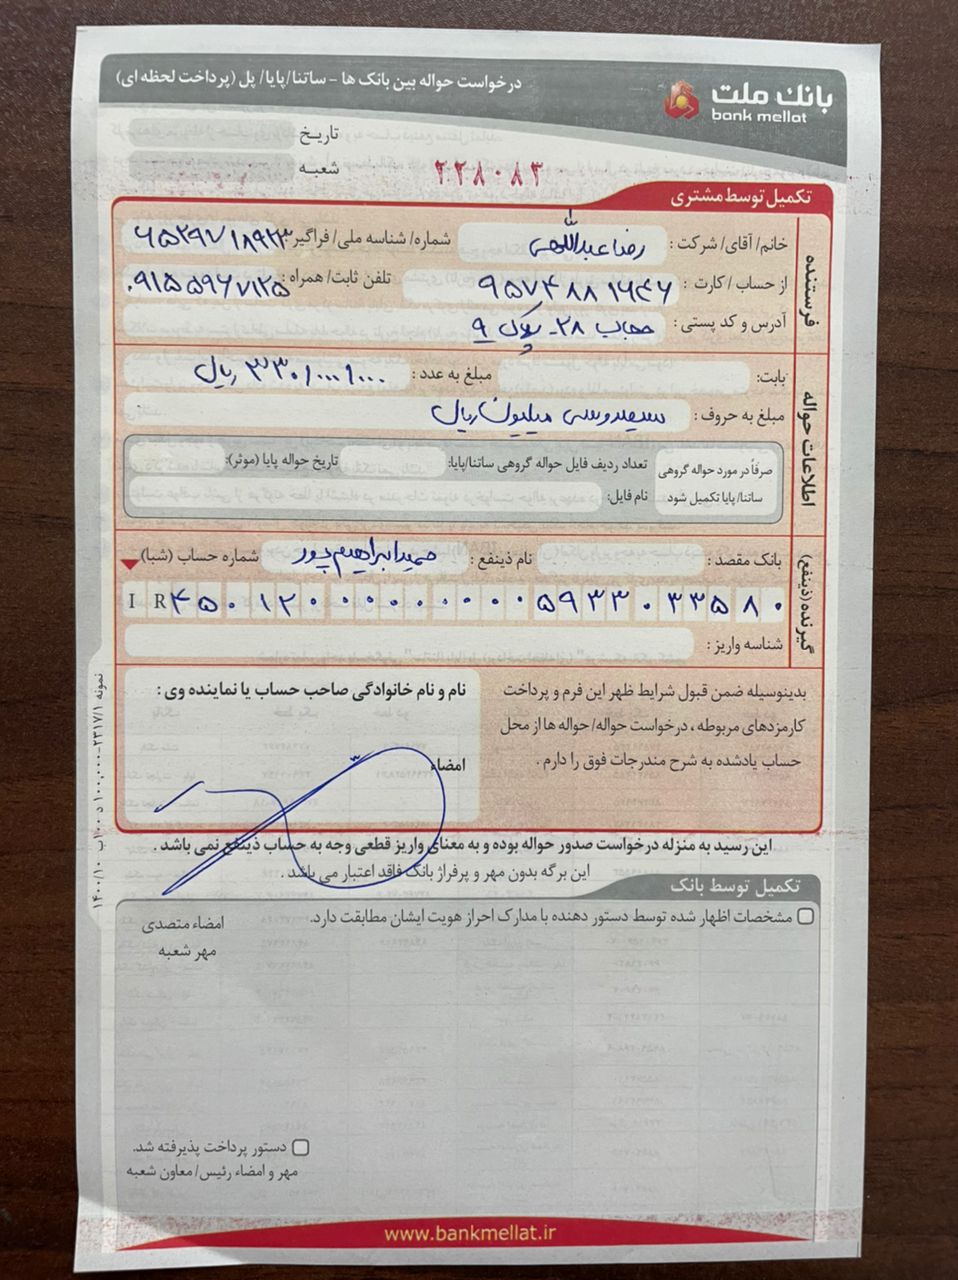 درخواست حواله بین بانک ها - ساتنا/پایا/ پل (پرداخت لحظه ای)
بانک ملت
bank mellat
تاریخ
شعبه
۲۲۸۰۸۳
تکمیل توسط مشتری
فرستنده
خانم/ آقای/ شرکت: رضا عبداللهی شماره/ شناسه ملی/ فراگیر: ۶۵۲۹۷۱۸۹۲۳
از حساب / کارت: ۹۵۷۴۸۸۱۶۴۶ تلفن ثابت/ همراه: ۰۹۱۵۵۹۶۷۱۲۵
آدرس و کد پستی: حجاب ۲۸- پلاک ۹
اطلاعات حواله
بابت: مبلغ به عدد: ۳۳۰/۰۰۰/۰۰۰ ریال
مبلغ به حروف: سیصد و سی میلیون ریال
صرفاً در مورد حواله گروهی ساتنا/ پایا تکمیل شود
تعداد ردیف فایل حواله گروهی ساتنا/پایا: تاریخ حواله پایا (موثر):
نام فایل:
گیرنده (ذینفع)
بانک مقصد: نام ذینفع: حمید ابراهیم پور شماره حساب (شبا):
IR ۴۵۰۱۲۰۰۰۰۰۰۰۰۰۰۵۹۳۳۰۳۳۵۸۰
شناسه واریز:
بدینوسیله ضمن قبول شرایط ظهر این فرم و پرداخت
کارمزدهای مربوطه، درخواست حواله/ حواله ها از محل
حساب یادشده به شرح مندرجات فوق را دارم.
نام و نام خانوادگی صاحب حساب یا نماینده وی:
امضاء
این رسید به منزله درخواست صدور حواله بوده و به معنای واریز قطعی وجه به حساب ذینفع نمی باشد.
این برگه بدون مهر و پرفراژ بانک فاقد اعتبار می باشد.
تکمیل توسط بانک
مشخصات اظهار شده توسط دستور دهنده با مدارک احراز هویت ایشان مطابقت دارد.
امضاء متصدی
مهر شعبه
دستور پرداخت پذیرفته شد.
مهر و امضاء رئیس/ معاون شعبه
www.bankmellat.ir